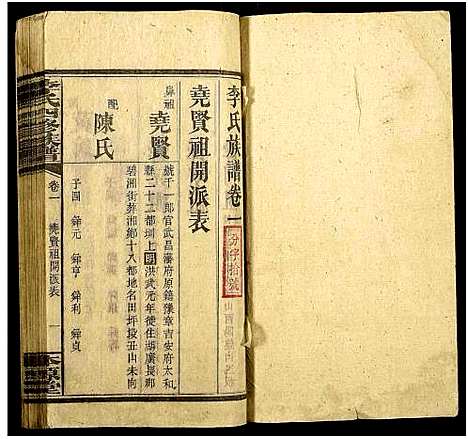 李氏族譜卷一
分字拾號
堯賢祖開派表
鼻祖
堯賢
號千一郎官武昌藩府原籍豫章吉安府太和
縣二十二都圳上明洪武元年徙住湖廣長郡
碧湘街葬湘鄉十八都地名田坪投丑山未向
配
陳氏
子四 舜元 舜亨 舜利 舜貞
李氏四修族譜
卷一
堯賢祖開派表
一